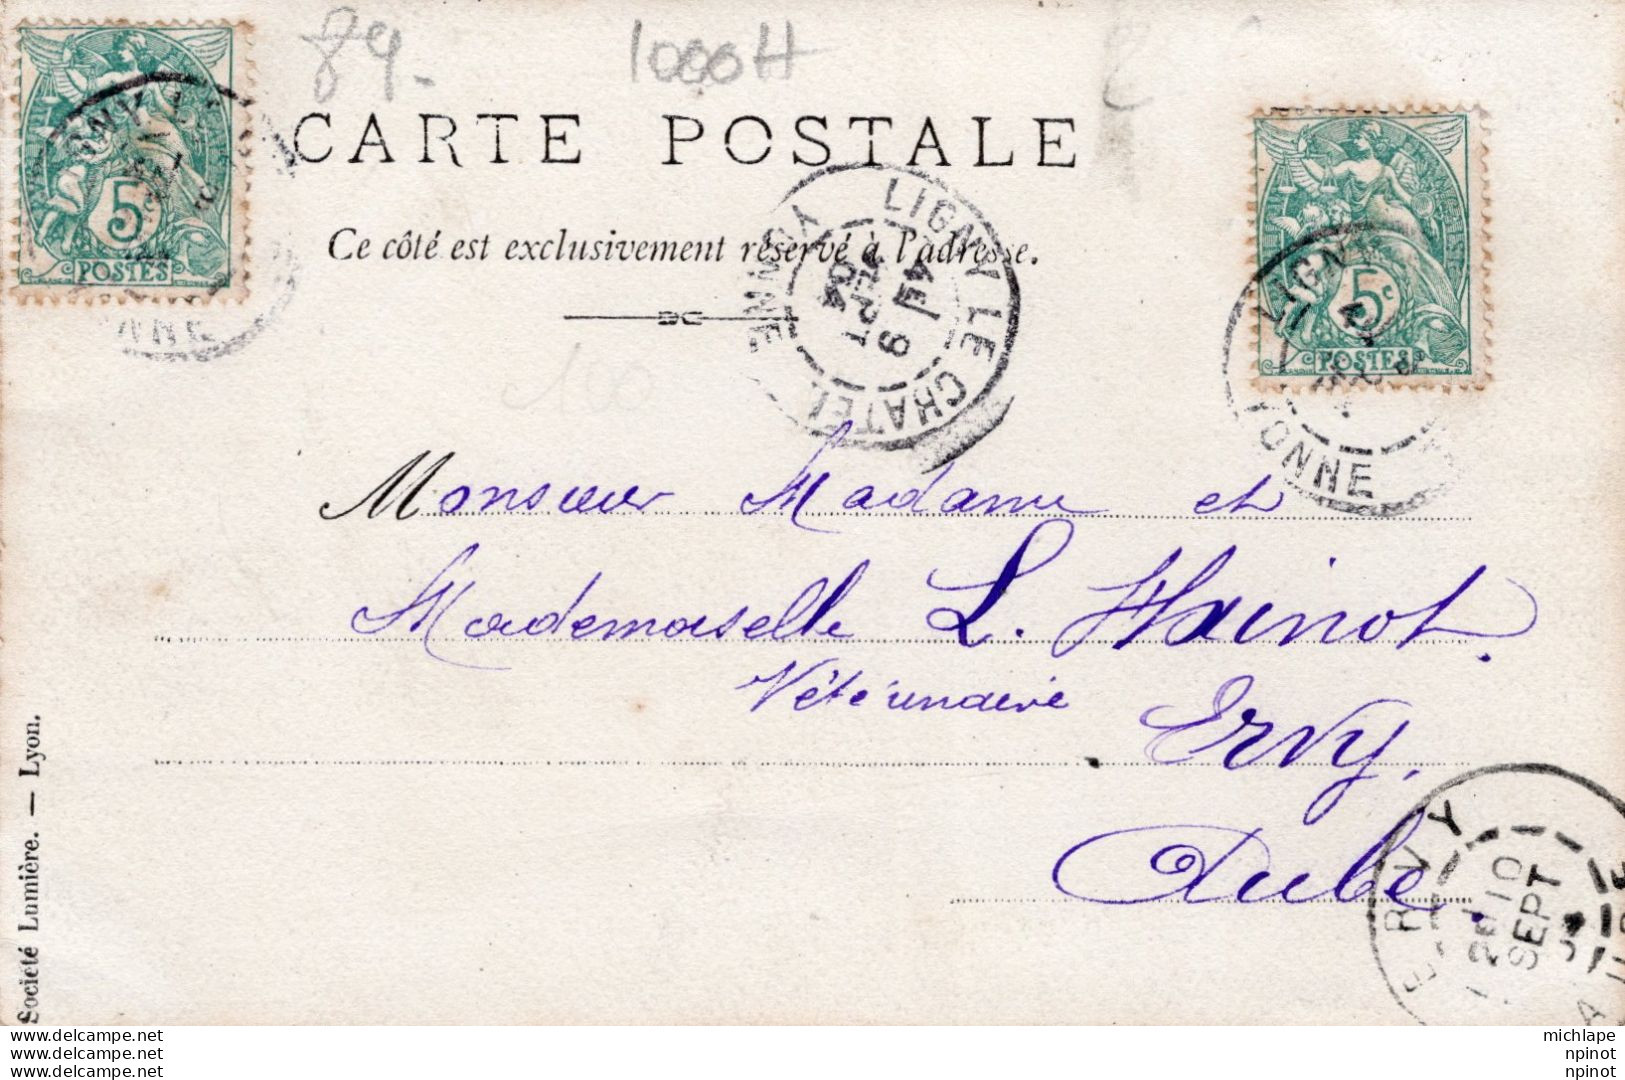 89.
1000H
CARTE POSTALE
Ce côté est exclusivement réservé à l'adresse.
5
POSTES
5c
POSTES
LIGNY LE CHATEL
YONNE
4E / 9
SEPT
04
LIGNY
YONNE
Monsieur Madame et
Mademoiselle L. Hainot.
Vétérinaire
Ervy.
Aube.
ERVY
2E / 10
SEPT
Société Lumière. — Lyon.
www.delcampe.net
www.delcampe.net
www.delcampe.net
michlape
npinot
npinot